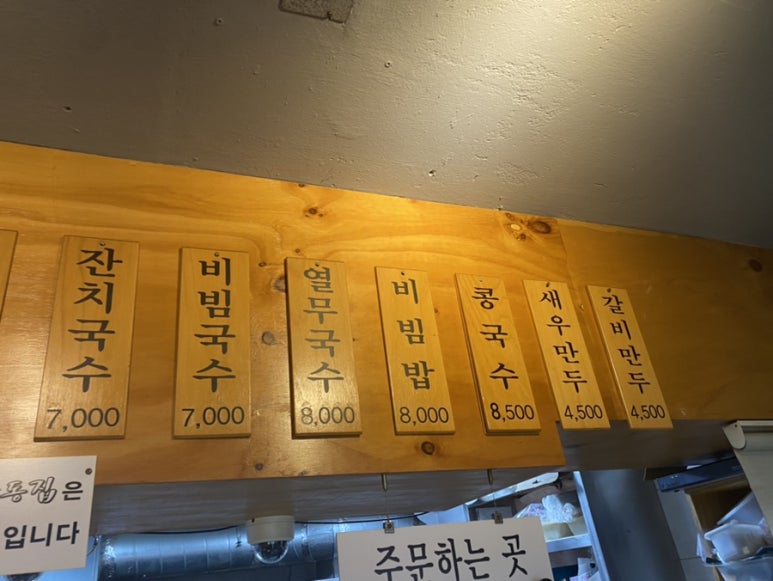 잔치국수
7,000
비빔국수
7,000
열무국수
8,000
비빔밥
8,000
콩국수
8,500
새우만두
4,500
갈비만두
4,500
동집은
입니다
주문하는 곳